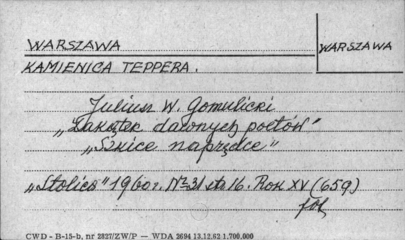 WARSZAWA
WARSZAWA
KAMIENICA TEPPERA.
Juliusz W. Gomulicki
„Zakątek dawnych poetów"
„Szkice naprędce"
„Stolica" 1960 r. Nr 31 str 16. Rok XV (659)
fot.
CWD — B-15-b, nr 2827/ZW/P — WDA 2694 13.12.62 1.700.000